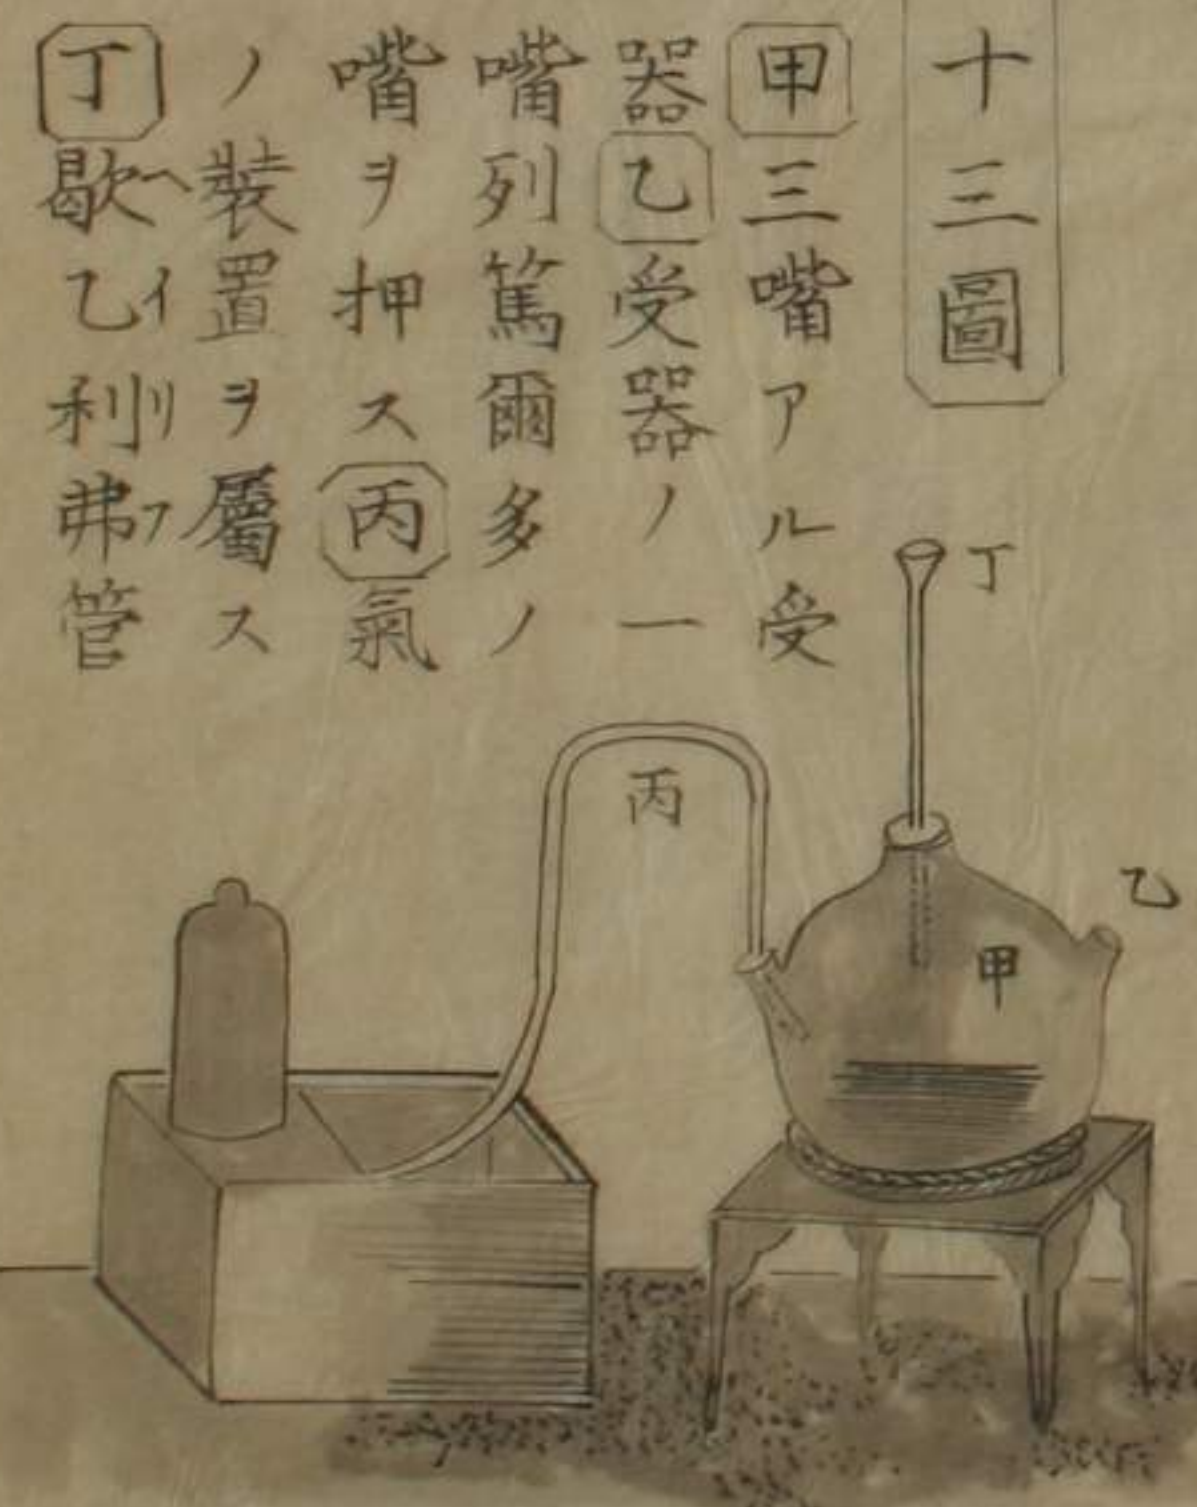 十三圖
甲三嘴アル受
器乙受器ノ一
嘴列篤爾多ノ
嘴ヲ押ス丙氣
ノ装置ヲ屬ス
丁歇乙利弗管
ヘイリフ
丁
丙
乙
甲